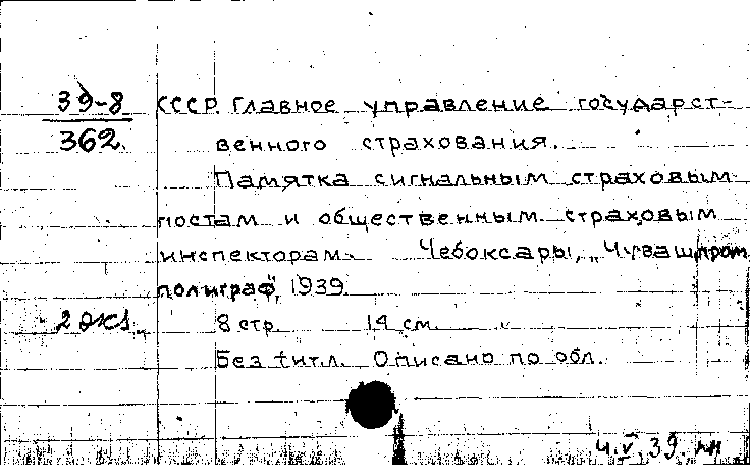 39-8 СССР. Главное управление государст-
362. венного страхования.
Памятка сигнальным страховым
постам и общественным страховым
инспекторам. Чебоксары, "Чувашпром
полиграф", 1939.
2 экз. 8 стр. 14 см.
Без титл. Описано по обл.
4.V.39.